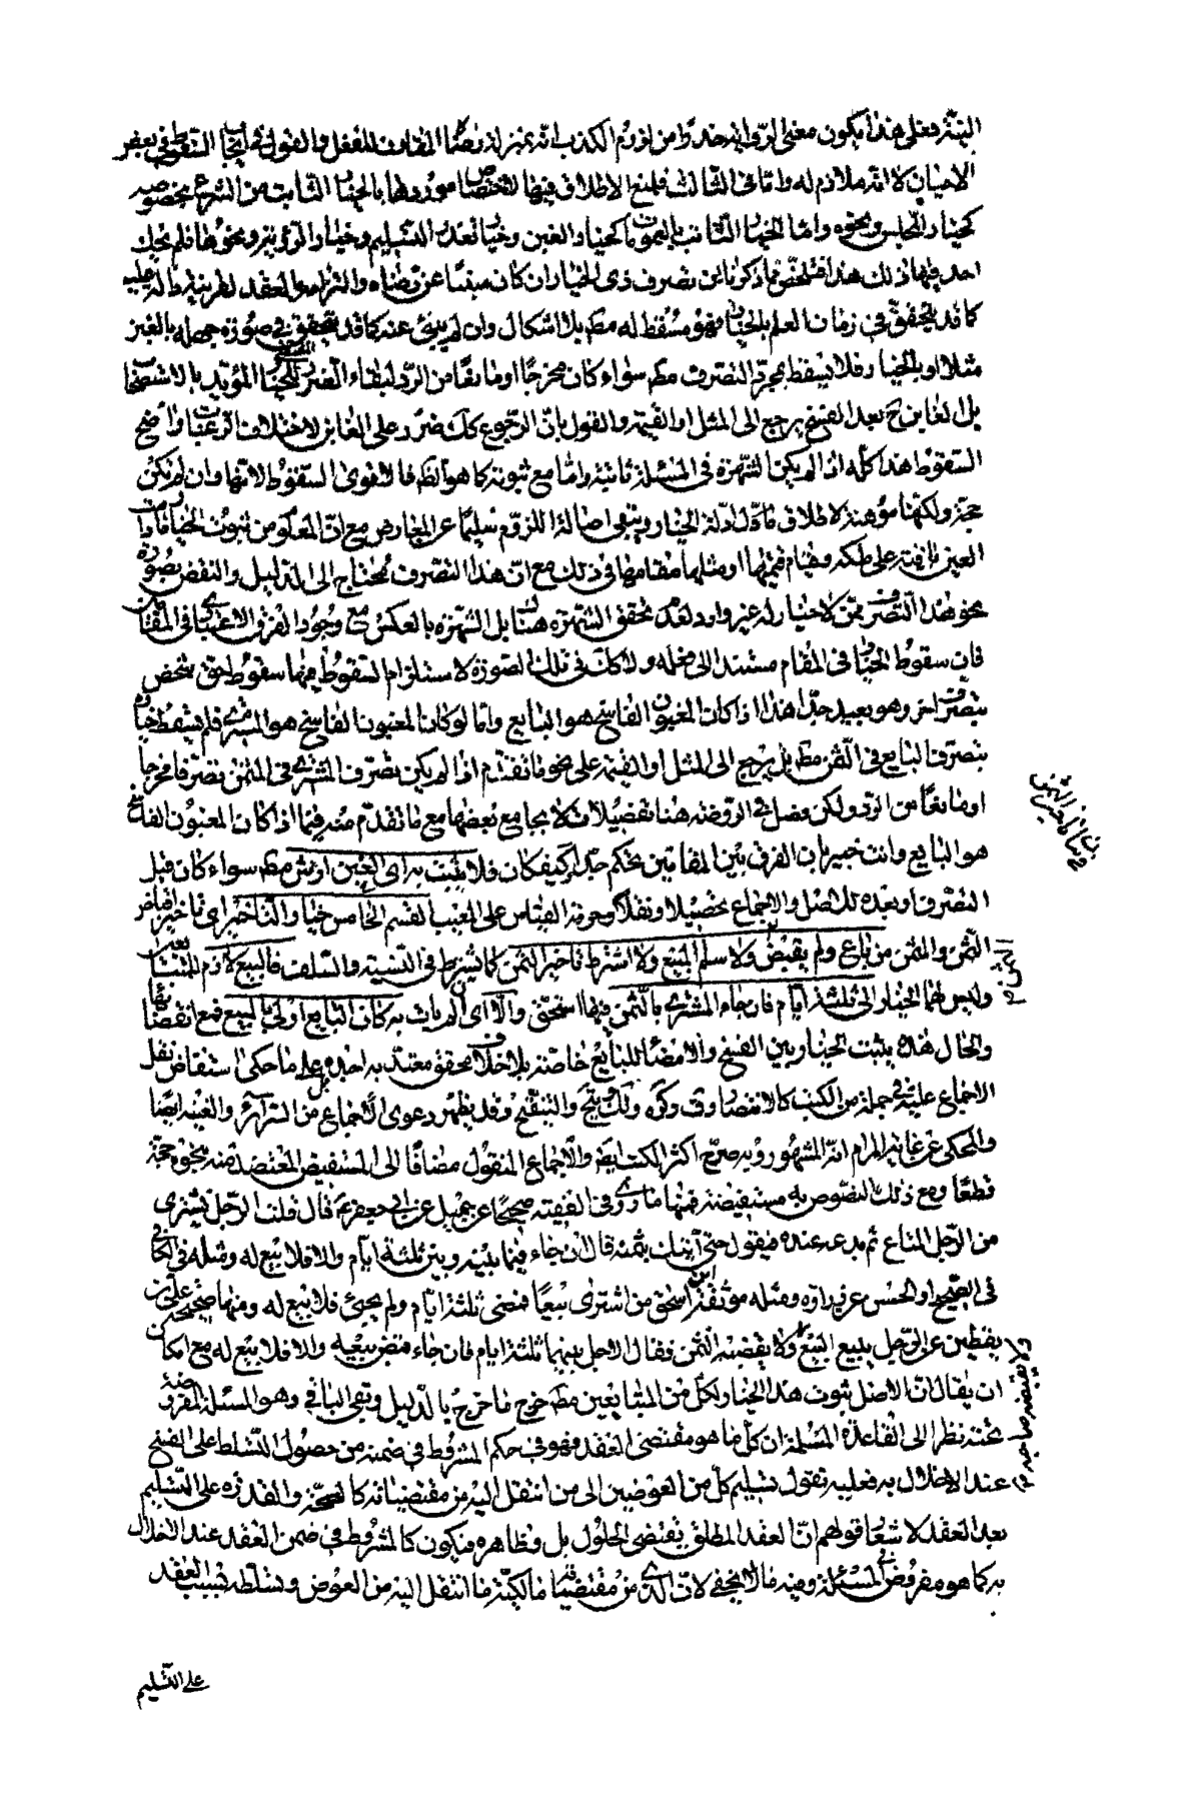 البتة فعلى هذا يكون معنى الرواية حذرا من لزوم الكذب انه بمنزلة رضا المقارن للفعل والقول في ايجاب السقوط في بعض
الاحيان لا انه ملازم له واما في الثالث فلمنع الاطلاق فيها لاختصاص موردها بالخيار الثابت من الشرع بخصوصه
كخيار المجلس ونحوه واما الخيار الثابت بالعمومات كخيار الغبن وخيار تعذر التسليم وخيار الرؤية ونحوها فلم يحك
احد فيها ذلك هذا فتلخص مما ذكرنا ان تصرف ذي الخيار ان كان مبنيا عن رضاه والتزامه العقد لقرينة دالة عليه
كما قد يتحقق في زمان العلم بالخيار فهو مسقط له مطلقا بلا اشكال وان لم ينبئ عنه كما قد يتحقق في صورة جهله بالغبن
مثلا او بالخيار فلا يسقط بمجرد التصرف مط سواء كان مخرجا او مانعا من الرد لبقاء الضرر للخيار المؤيد بالاستصحاب
بل الغابن ح بعد الفسخ يرجع الى المثل او القيمة والقول بان الرجوع كك ضرر على الغابن لاختلاف الرغبات واضح
السقوط هذا كله اذا لم يكن الشهرة في المسئلة ثابتة واما مع ثبوته كما هو الظ فالاقوى السقوط لانها وان لم تكن
حجة ولكنها موهنة لاطلاق ادلة الخيار ويبقى اصالة اللزوم سليما عن المعارض مع ان المعلوم من ثبوت الخيار مادامت
العين باقية على ملكه وقيام قيمتها او مثلها مقامها في ذلك مع ان هذا التصرف يحتاج الى الدليل والنقض بصورة
نحو هذا التصرف ممن لا خيار له غير وارد لعدم تحقق الشهرة هنا بل الشهرة بالعكس مع وجود الفرق الاعتباري في المقامين
فان سقوط الخيار في المقام مستند الى فعله ولا كك في تلك الصورة لاستلزام السقوط فيها سقوط حق شخص
بتصرف اخر وهو بعيد جدا هذا اذا كان المغبون الفاسخ هو البايع واما لو كان المغبون الفاسخ هو المشتري فلم يسقط خياره
بتصرف البايع في الثمن مط بل يرجع الى المثل او القيمة على نحو ما تقدم اذا لم يكن تصرف المشتري في المثمن تصرفا مخرجا
او مانعا من الرد ولكن فصل في الروضة هنا تفصيلات لا يجامع بعضها مع ما تقدم منه فيما اذا كان المغبون الفاسخ
هو البايع وانت خبير بان الفرق بين المقامين تحكم جدا وكيف كان فلا يثبت به اي الغبن ارش مط سواء كان قبل
التصرف او بعده للاصل والاجماع تحصيلا ونقلا وحرمة القياس على العيب القسم الخامس خيار التاخير اي تاخير اقباض
الثمن والمثمن من باع ولم يقبض ولا سلم المبيع ولا اشترط تاخير الثمن كما يشترط في النسيئة والسلف فالبيع لازم للمتبايعين
وليس لهما الخيار الى ثلثة ايام فان جاء المشتري بالثمن فيها استحق والا اي ان لم يات به كان البايع اولى بالمبيع فمع انقضائها
والحال هذه يثبت الخيار بين الفسخ والامضاء للبايع خاصة بلا خلاف محقق معتد به اجده على ما حكى استفاض نقل
الاجماع عليه في جملة من الكتب كالانتصار وف وكره ولك والتنقيح وقد يظهر دعوى الاجماع من السرائر والغنية ايضا
والمحكي عن غاية المرام انه المشهور وبه صرح اكثر الكتب ايض والاجماع المنقول مضافا الى المستفيض المعتضد منه بنحوه حجة
قطعا ومع ذلك النصوص به مستفيضة فمنها ما روى في الفقيه صحيحا عن جميل عن ابي جعفر ع قال قلت الرجل يشتري
من الرجل المتاع ثم يدعه عنده فيقول حتى آتيك بثمنه قال ان جاء فيما بينه وبين ثلثة ايام والا فلا بيع له ومثله في الكافي
في الصحيح او الحسن عن زرارة ومثله موثقة اسحق من اشترى بيعا فمضى ثلثة ايام ولم يجئ فلا بيع له ومنها صحيحة علي بن
يقطين عن الرجل يبيع البيع ولا يقبضه الثمن فقال الاجل بينهما ثلثة ايام فان جاء قبض بيعه والا فلا بيع له مع امكان
ان يقال ان الاصل ثبوت هذا الخيار لكل من المتبايعين مط خرج ما خرج بالدليل وبقي الباقي وهو المسئلة المفروضة
تحته نظرا الى القاعدة المسلمة ان كل ما هو مقتضى العقد فهو في حكم المشروط في ضمنه من حصول التسلط على الفسخ
عند الاخلال به فعليه نقول تسليم كل من العوضين الى من انتقل اليه من مقتضياته كالصحة والقدرة على التسليم
بعد العقد لاشعار قولهم ان العقد المطلق يقتضي الحلول بل وظاهره فيكون كالمشروط في ضمن العقد عند الاخلال
به كما هو مفروض المسئلة وفيه ما لا يخفى لان الذي من مقتضياته مالكية ما انتقل اليه من العوض وتسلطه بسبب العقد
ولا يقبضه صاحبه
على التسليم